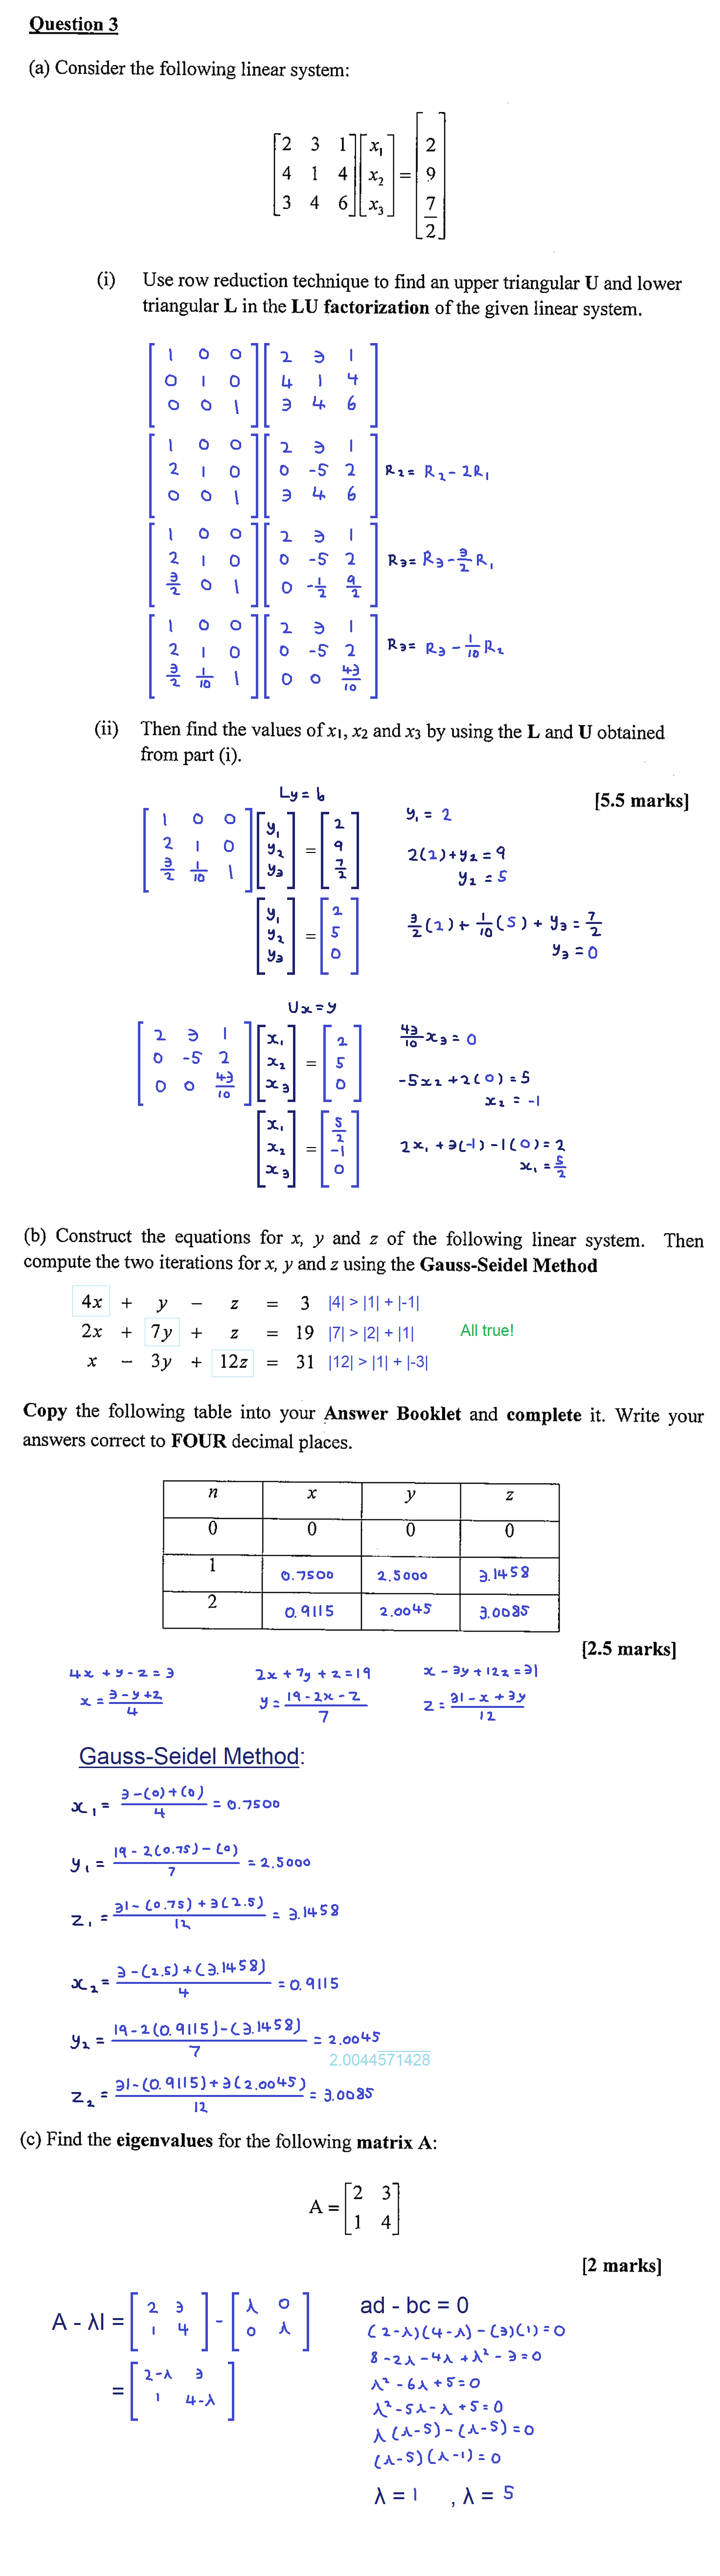 Question 3
(a) Consider the following linear system:
[2 3 1; 4 1 4; 3 4 6] [x₁; x₂; x₃] = [2; 9; 7/2]
(i) Use row reduction technique to find an upper triangular U and lower
triangular L in the LU factorization of the given linear system.
[1 0 0; 0 1 0; 0 0 1] [2 3 1; 4 1 4; 3 4 6]
[1 0 0; 2 1 0; 0 0 1] [2 3 1; 0 -5 2; 3 4 6] R₂ = R₂ - 2R₁
[1 0 0; 2 1 0; 3/2 0 1] [2 3 1; 0 -5 2; 0 -1/2 9/2] R₃ = R₃ - 3/2 R₁
[1 0 0; 2 1 0; 3/2 1/10 1] [2 3 1; 0 -5 2; 0 0 43/10] R₃ = R₃ - 1/10 R₂
(ii) Then find the values of x₁, x₂ and x₃ by using the L and U obtained
from part (i).
[5.5 marks]
Ly = b
[1 0 0; 2 1 0; 3/2 1/10 1] [y₁; y₂; y₃] = [2; 9; 7/2]
y₁ = 2
2(2) + y₂ = 9
y₂ = 5
[y₁; y₂; y₃] = [2; 5; 0]
3/2 (2) + 1/10 (5) + y₃ = 7/2
y₃ = 0
Ux = y
[2 3 1; 0 -5 2; 0 0 43/10] [x₁; x₂; x₃] = [2; 5; 0]
43/10 x₃ = 0
-5x₂ + 2(0) = 5
x₂ = -1
[x₁; x₂; x₃] = [5/2; -1; 0]
2x₁ + 3(-1) - 1(0) = 2
x₁ = 5/2
(b) Construct the equations for x, y and z of the following linear system. Then
compute the two iterations for x, y and z using the Gauss-Seidel Method
4x + y − z = 3 |4| > |1| + |-1|
2x + 7y + z = 19 |7| > |2| + |1| All true!
x − 3y + 12z = 31 |12| > |1| + |-3|
Copy the following table into your Answer Booklet and complete it. Write your
answers correct to FOUR decimal places.
n x y z
0 0 0 0
1 0.7500 2.5000 3.1458
2 0.9115 2.0045 3.0085
[2.5 marks]
4x + y - z = 3 2x + 7y + z = 19 x - 3y + 12z = 31
x = (3 - y + z)/4 y = (19 - 2x - z)/7 z = (31 - x + 3y)/12
Gauss-Seidel Method:
x₁ = (3 - (0) + (0))/4 = 0.7500
y₁ = (19 - 2(0.75) - (0))/7 = 2.5000
z₁ = (31 - (0.75) + 3(2.5))/12 = 3.1458
x₂ = (3 - (2.5) + (3.1458))/4 = 0.9115
y₂ = (19 - 2(0.9115) - (3.1458))/7 = 2.0045
2.0044571428
z₂ = (31 - (0.9115) + 3(2.0045))/12 = 3.0085
(c) Find the eigenvalues for the following matrix A:
A = [2 3; 1 4]
[2 marks]
A - λI = [2 3; 1 4] - [λ 0; 0 λ]
= [2-λ 3; 1 4-λ]
ad - bc = 0
(2-λ)(4-λ) - (3)(1) = 0
8 - 2λ - 4λ + λ² - 3 = 0
λ² - 6λ + 5 = 0
λ² - 5λ - λ + 5 = 0
λ(λ-5) - (λ-5) = 0
(λ-5)(λ-1) = 0
λ = 1 , λ = 5